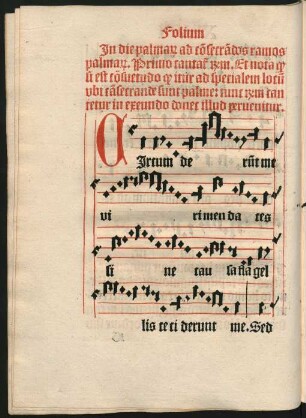 Folium
In die palmaꝝ ad cõsecrãdos ramos
palmaꝝ. Primo cantat̃ rm̃. Et nota qꝫ
si est cõsuetudo qꝫ itur ad specialem locũ
vbi cõsecrande sunt palme: tunc rm̃ can
tetur in exeundo donec illud perueniatur.
Circum de rũt me
vi ri men da ces
si ne cau sa fla gel
lis ce ci derunt me. Sed